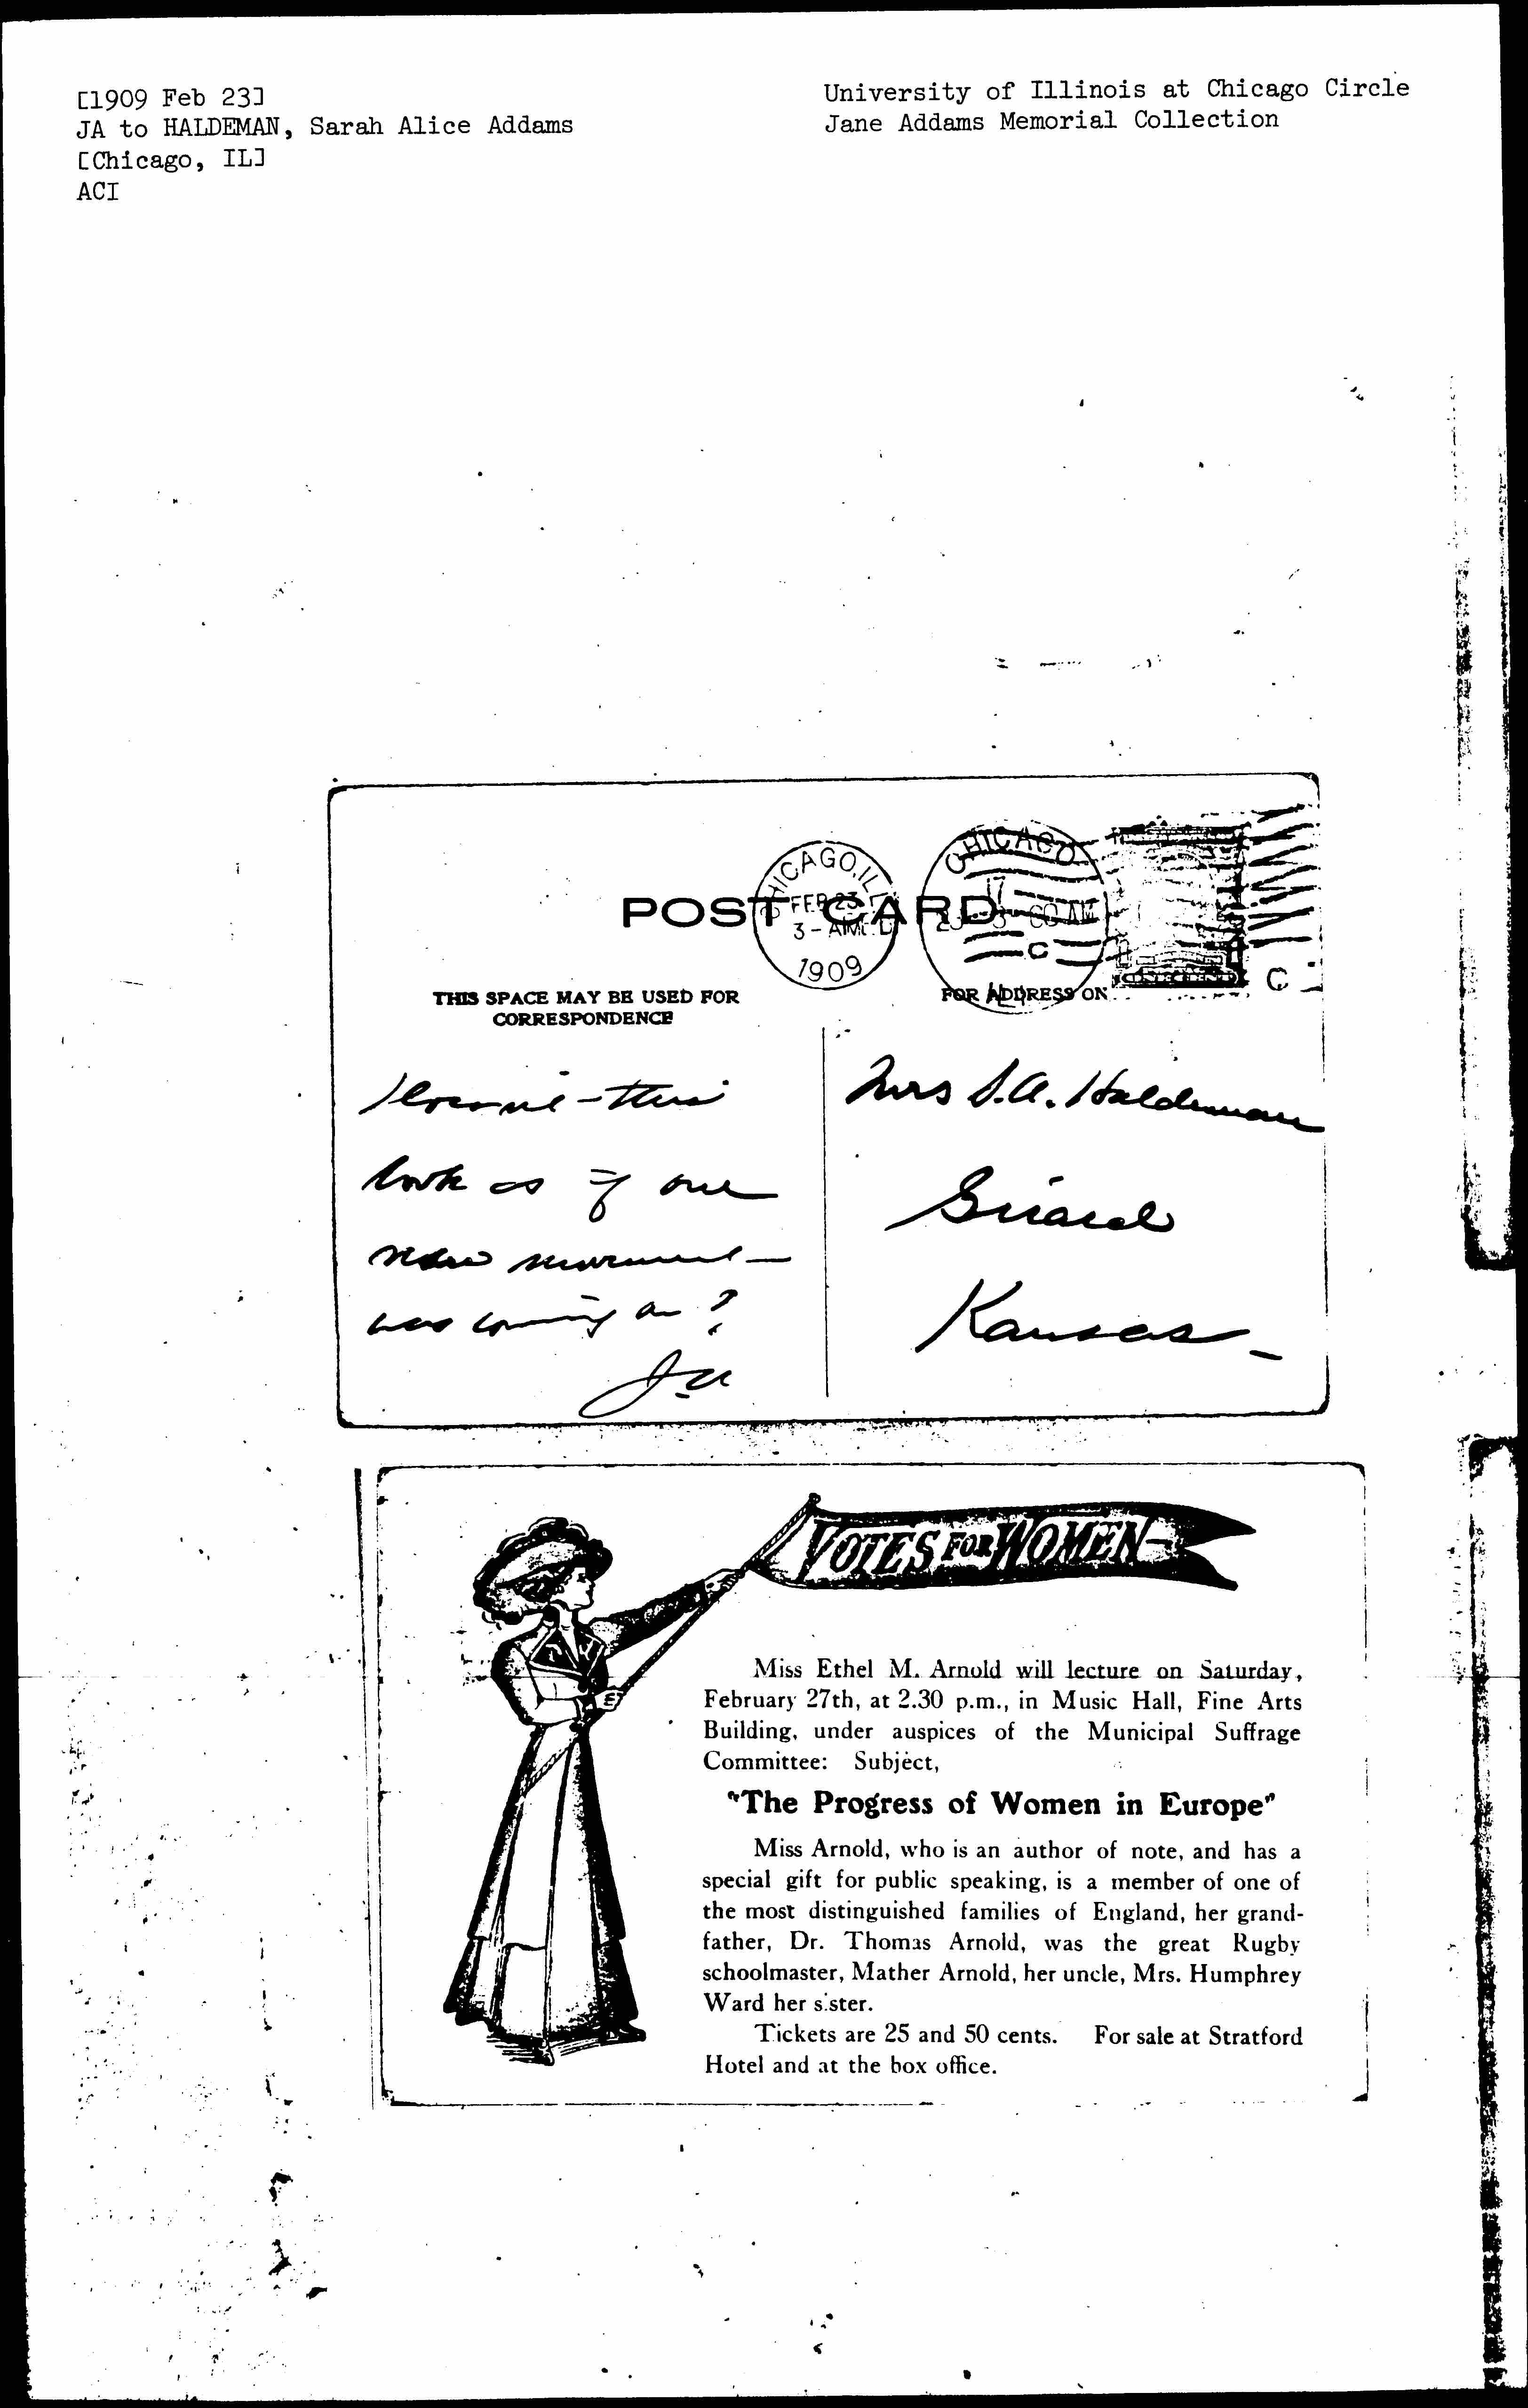 [1909 Feb 23]
JA to HALDEMAN, Sarah Alice Addams
[Chicago, IL]
ACI
University of Illinois at Chicago Circle
Jane Addams Memorial Collection
POST CARD
CHICAGO, ILL
FEB 23
3 - AM
1909
CHICAGO
THIS SPACE MAY BE USED FOR
CORRESPONDENCE
FOR ADDRESS ON
this
look as if our
new movement
was coming on?
JA
Mrs S.A. Haldeman
Girard
Kansas
VOTES FOR WOMEN
Miss Ethel M. Arnold will lecture on Saturday,
February 27th, at 2.30 p.m., in Music Hall, Fine Arts
Building, under auspices of the Municipal Suffrage
Committee: Subject,
"The Progress of Women in Europe"
Miss Arnold, who is an author of note, and has a
special gift for public speaking, is a member of one of
the most distinguished families of England, her grand-
father, Dr. Thomas Arnold, was the great Rugby
schoolmaster, Mather Arnold, her uncle, Mrs. Humphrey
Ward her sister.
Tickets are 25 and 50 cents. For sale at Stratford
Hotel and at the box office.